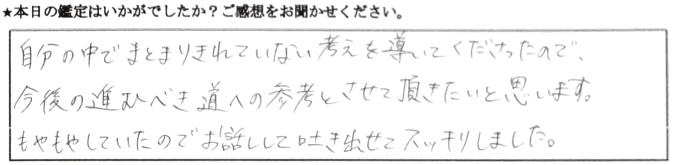 ★本日の鑑定はいかがでしたか？ご感想をお聞かせください。
自分の中でまとまりきれていない考えを導いてくださったので、
今後の進むべき道への参考とさせて頂きたいと思います。
もやもやしていたのでお話しして吐き出せてスッキリしました。